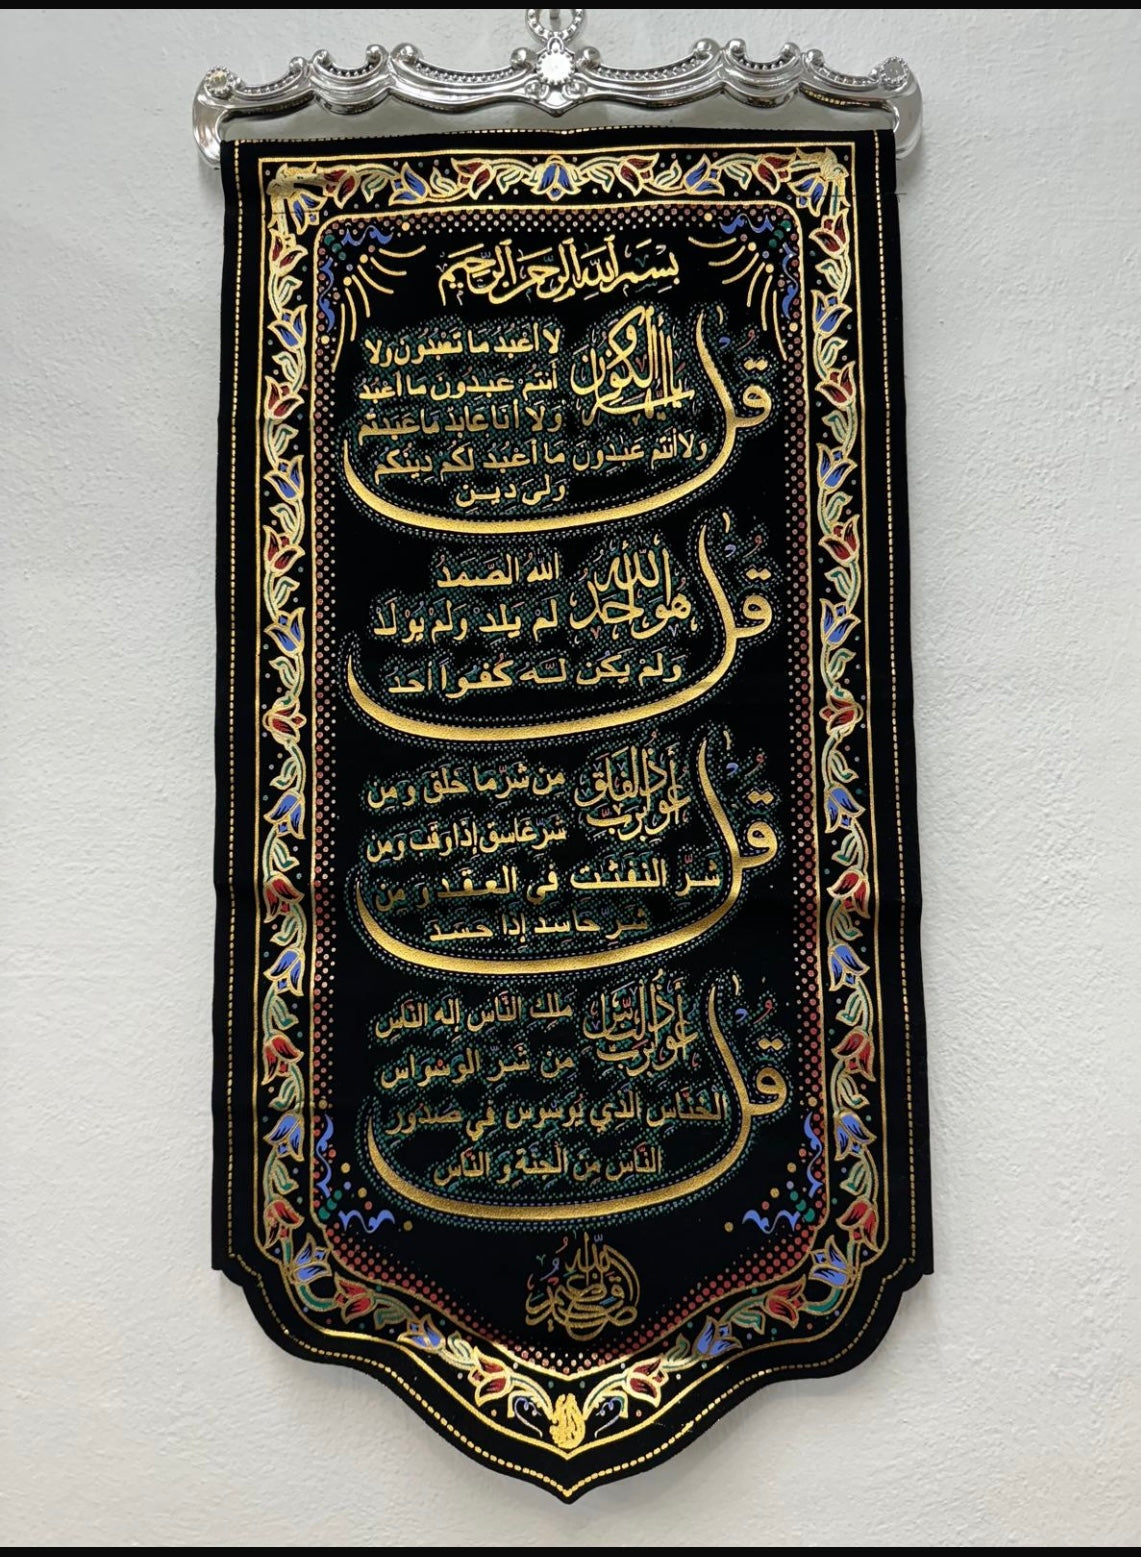 بسم الله الرحمن الرحيم
قل يا أيها الكفرون
لا أعبد ما تعبدون ولا
أنتم عبدون ما أعبد
ولا أنا عابد ما عبدتم
ولا أنتم عبدون ما أعبد لكم دينكم
ولي دين
قل هو الله أحد
الله الصمد
لم يلد ولم يولد
ولم يكن له كفوا أحد
قل أعوذ برب الفلق
من شر ما خلق ومن
شر غاسق إذا وقب ومن
شر النفثت في العقد ومن
شر حاسد إذا حسد
قل أعوذ برب الناس
ملك الناس إله الناس
من شر الوسواس
الخناس الذي يوسوس في صدور
الناس من الجنة و الناس
صدق الله العظيم